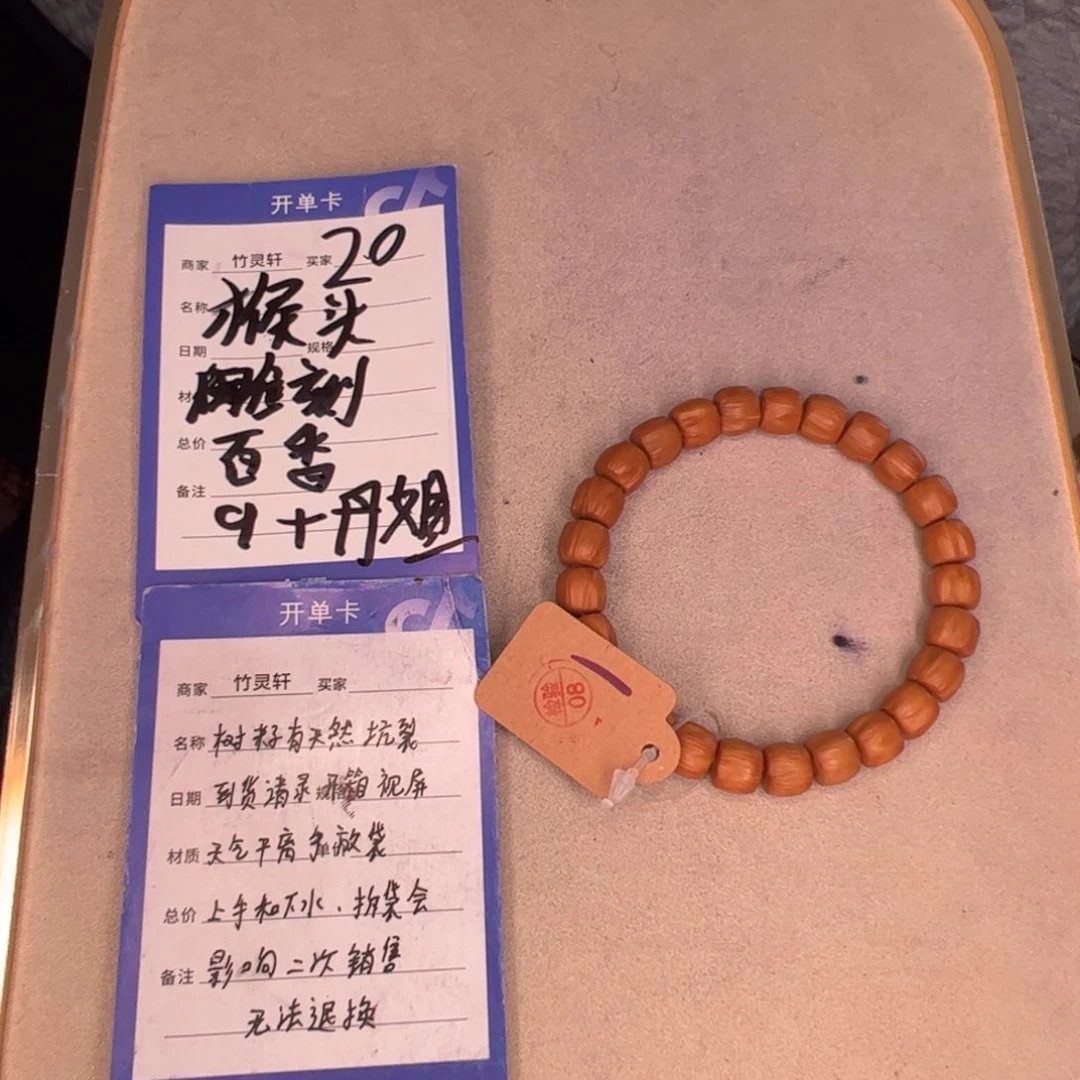 开单卡
商家 竹灵轩 买家 20
名称 猴头
日期 规格
材 雕刻
总价 百香
备注
9+丹姐
开单卡
商家 竹灵轩 买家
名称 树籽有天然坑裂
日期 到货请录开箱视屏
材质 天气干寄多放袋
总价 上手和下水.拆袋会
备注 影响二次销售
无法退换
检验
08